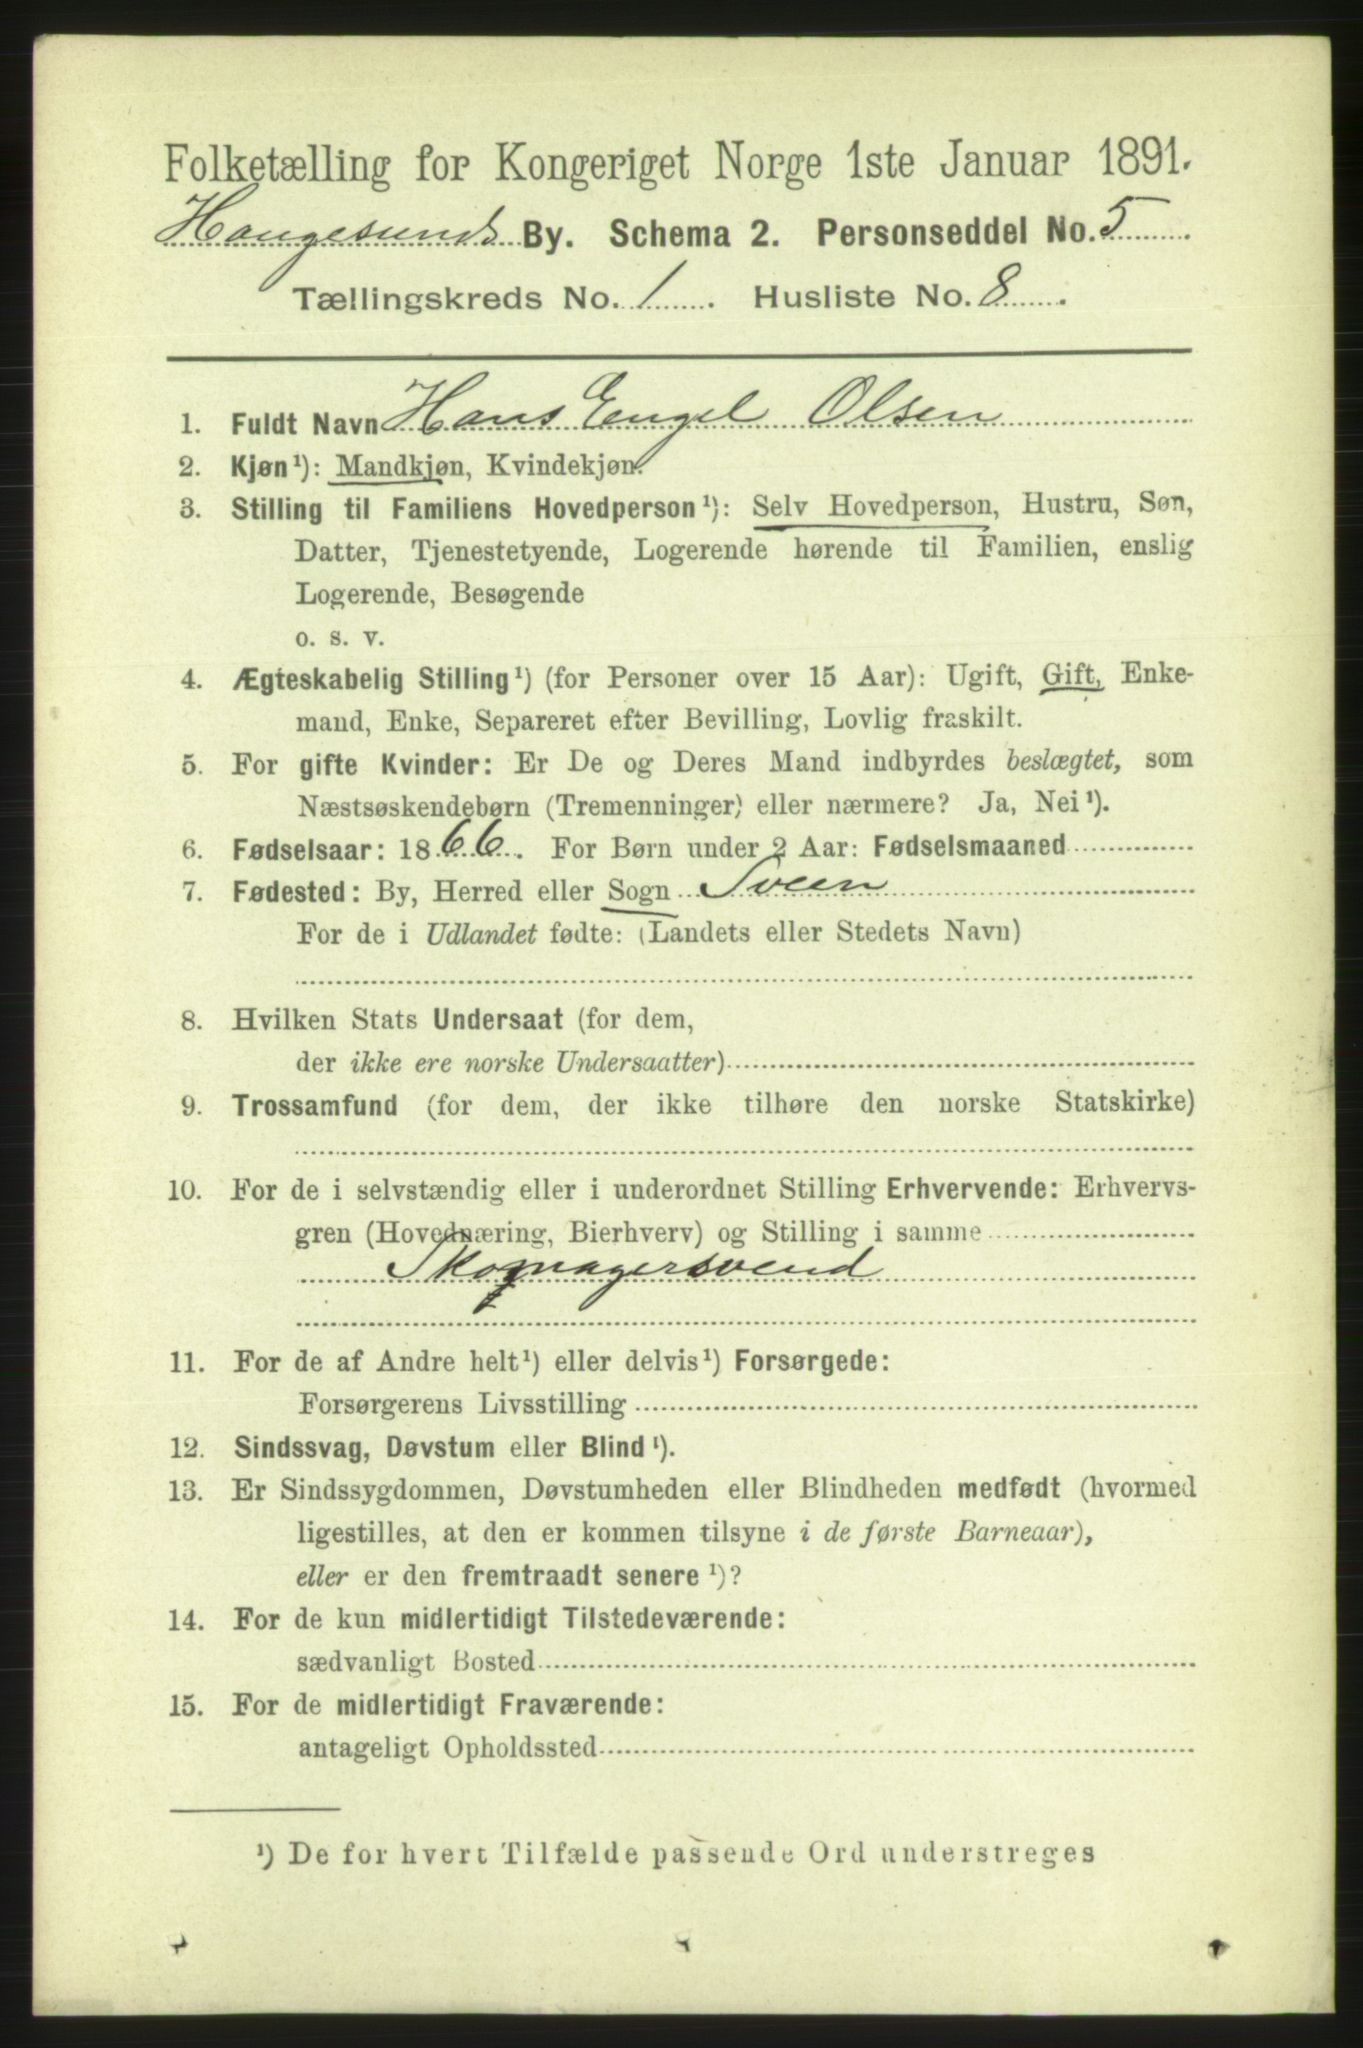 Folketælling for Kongeriget Norge 1ste Januar 1891.
Haugesunds By. Schema 2. Personseddel No. 5
Tællingskreds No. 1. Husliste No. 8.
1. Fuldt Navn Hans Engel Olsen
2. Kjøn¹): Mandkjøn, Kvindekjøn.
3. Stilling til Familiens Hovedperson¹): Selv Hovedperson, Hustru, Søn,
Datter, Tjenestetyende, Logerende hørende til Familien, enslig
Logerende, Besøgende
o. s. v.
4. Ægteskabelig Stilling¹) (for Personer over 15 Aar): Ugift, Gift, Enke-
mand, Enke, Separeret efter Bevilling, Lovlig fraskilt.
5. For gifte Kvinder: Er De og Deres Mand indbyrdes beslægtet, som
Næstsøskendebørn (Tremenninger) eller nærmere? Ja, Nei¹).
6. Fødselsaar: 1866. For Børn under 2 Aar: Fødselsmaaned
7. Fødested: By, Herred eller Sogn Sveen
For de i Udlandet fødte: (Landets eller Stedets Navn)
8. Hvilken Stats Undersaat (for dem,
der ikke ere norske Undersaatter)
9. Trossamfund (for dem, der ikke tilhøre den norske Statskirke)
10. For de i selvstændig eller i underordnet Stilling Erhvervende: Erhvervs-
gren (Hovednæring, Bierhverv) og Stilling i samme
Skomagersvend
11. For de af Andre helt¹) eller delvis¹) Forsørgede:
Forsørgerens Livsstilling
12. Sindssvag, Døvstum eller Blind¹).
13. Er Sindssygdommen, Døvstumheden eller Blindheden medfødt (hvormed
ligestilles, at den er kommen tilsyne i de første Barneaar),
eller er den fremtraadt senere¹)?
14. For de kun midlertidigt Tilstedeværende:
sædvanligt Bosted
15. For de midlertidigt Fraværende:
antageligt Opholdssted
¹) De for hvert Tilfælde passende Ord understreges